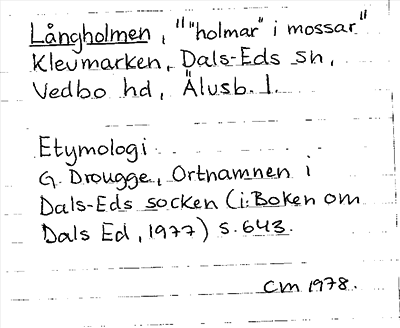 Långholmen, "“holmar” i mossar"
Klevmarken, Dals-Eds sn,
Vedbo hd, Älvsb. l.
Etymologi
G. Drougge, Ortnamnen i
Dals-Eds socken (i: Boken om
Dals Ed, 1977) s. 643.
CM 1978.